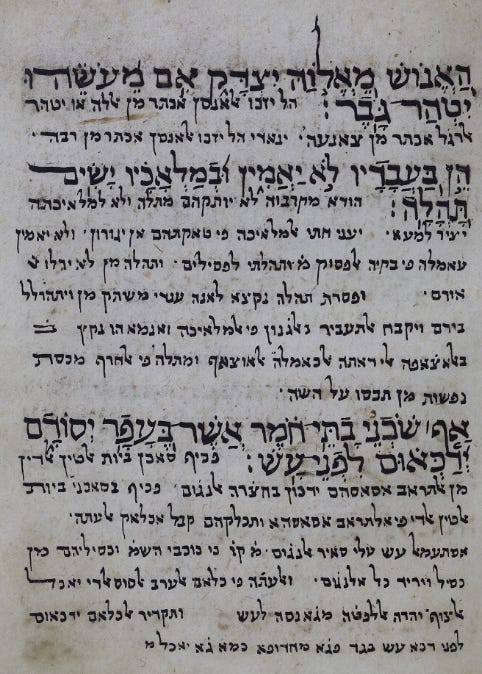 הַאֱנוֹשׁ מֵאֱלוֹהַּ יִצְדָּק אִם מֵעֹשֵׂהוּ
יִטְהַר גָּבֶר׃ הל יזכו ﭏאנסן אכתר מן אללה או יטהר
ﭏרגל אכתר מן צאנעה׳ הל יזכו ﭏאנסן אכתר מן רבה׳
הֵן בַּעֲבָדָיו לֹא יַאֲמִין וּבְמַלְאָכָיו יָשִׂים
תָּהֳלָה׃ הודא מקרבוה לא יותקהם מתלה ולא למלאיכתה
יציר למעא׳ יעני חתי ﭏמלאיכה פי טאקתהם אן יגורון׳ ולא יאמין
פי בקיה ﭏפסוק ותהלתי לפסילים׳ ותהלה מן לא יהלו
אורם׳ ופסרת תהלה נקצא לאנה ענדי משתק מן ויתהולל
בידם ויקבח ﭏתעביר בﭏגנון פי ﭏמלאיכה ואנמא הו נקץ
ﭏכאמלה ﭏאוצאף ומתלה פי ﭏחרף מכסות
נפשות מן תכסו על השה׳
אַף שֹׁכְנֵי בָתֵּי חֹמֶר אֲשֶׁר בֶּעָפָר יְסוֹדָם
יְדַכְּאוּם לִפְנֵי עָשׁ׃ פכיף סאכן ביות ﭏטין ﭏדין
מן ﭏתראב אסאסהם ידכון בחצרה ﭏנגום׳ פכיף בסאכני ביות
ﭏטין ﭏדי פי ﭏתראב אסאסהא ותכלקהם קבל אכלאק ﭏעתה׳
אסתעמל עש עלי סאיר ﭏנגום׳ כי כוכבי השמ׳ וכסיליהם מן
כסיל ויריד כל אלנגום׳ וﭏעתה פי כלאם ﭏערב ﭏסוס ﭏדי יאכל
ﭏצוף והדה ﭏלפטה מגאנסה לעש ותקדיר ﭏכלאם ידכאום
לפני דכא עש בגד פגא מחדופא כמא גא יאכל מ